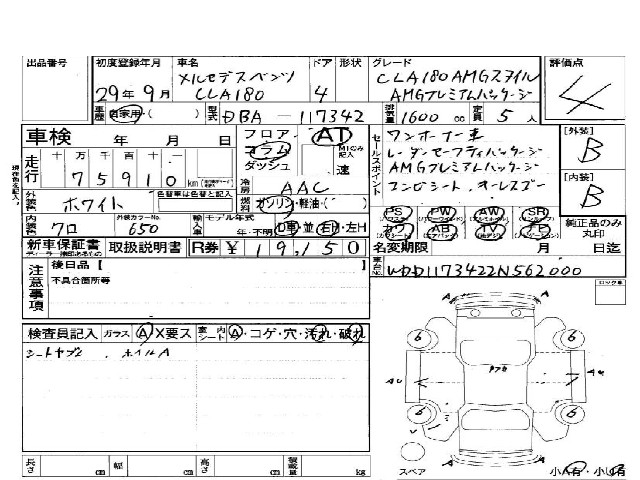 出品番号
初度登録年月 車名 ドア 形状 グレード 評価点
29年9月 メルセデスベンツ CLA180 4 CLA180 AMGスタイル AMGプレミアムパッケージ 4
車歴 自家用( ) 型式 DBA-117342 排気量 1600 cc 定員 5 人
車検 年 月 日 フロア AT セールスポイント ワンオーナー車 [外装] B
走行 十 万 千 百 十 一 コラム ダッシュ MTのみ記入 速 レーダーセーフティパッケージ
現在色を記入。
75910 km 冷房 AAC AMGプレミアムパッケージ [内装] B
外装色 ホワイト 色替車は色替と記入 燃料 ガソリン・軽油・( )
内装色 クロ 外装カラーNo. 650 輸入車 モデル年式 年・不明 D車・並 右H・左H
PS PW AW SR
カワ AB TV 純正品のみ丸印
新車保証書 取扱説明書 R券 ¥19,150 名変期限 月 日迄
注意事項 後日品[ 車台No. WDD1173422N562000
不具合箇所等 ロック車
検査員記入 ガラス A X要ス 室内シート A・コゲ・穴・汚れ・破れ
シートヤブレ . ホイルA
A
6 6
6 6
スペア 小A有・小U有
長さ cm 幅 cm 高さ cm 積載量 kg